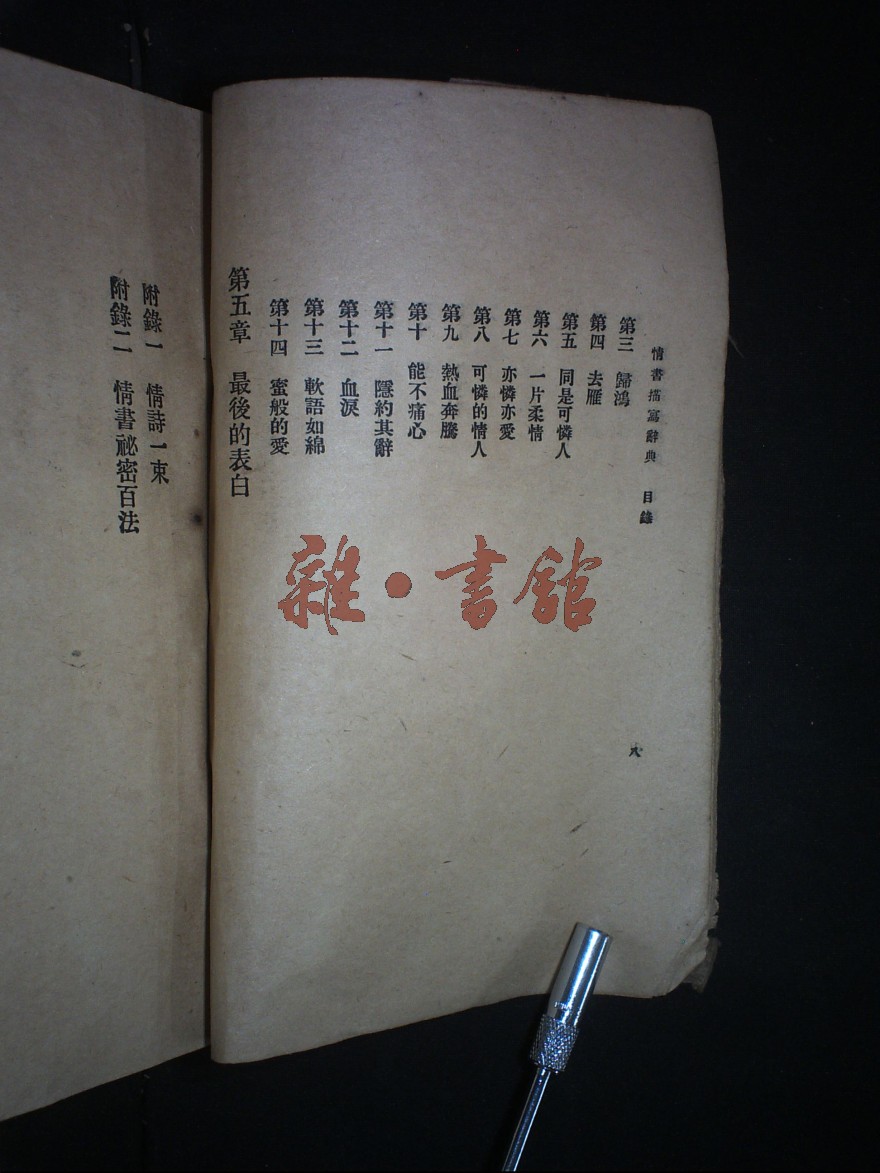 情書描寫辭典 目錄
第三 歸鴻
第四 去雁
第五 同是可憐人
第六 一片柔情
第七 亦憐亦愛
第八 可憐的情人
第九 熱血奔騰
第十 能不痛心
第十一 隱約其辭
第十二 血淚
第十三 軟語如綿
第十四 蜜般的愛
第五章 最後的表白
六
附錄一 情詩一束
附錄二 情書祕密百法
雜·書館